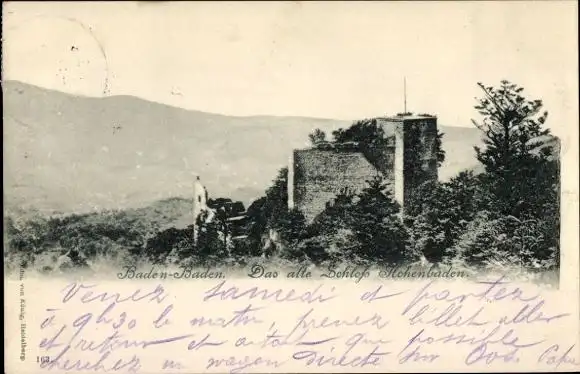 Baden-Baden. Das alte Schloß Hohenbaden.
Venez Samedi et partez
à 9h30 le matin, prenez billet aller
et retour et autant que possible
cherchez un wagon directe sur Oos. Papa
Verlag von König, Heidelberg
163